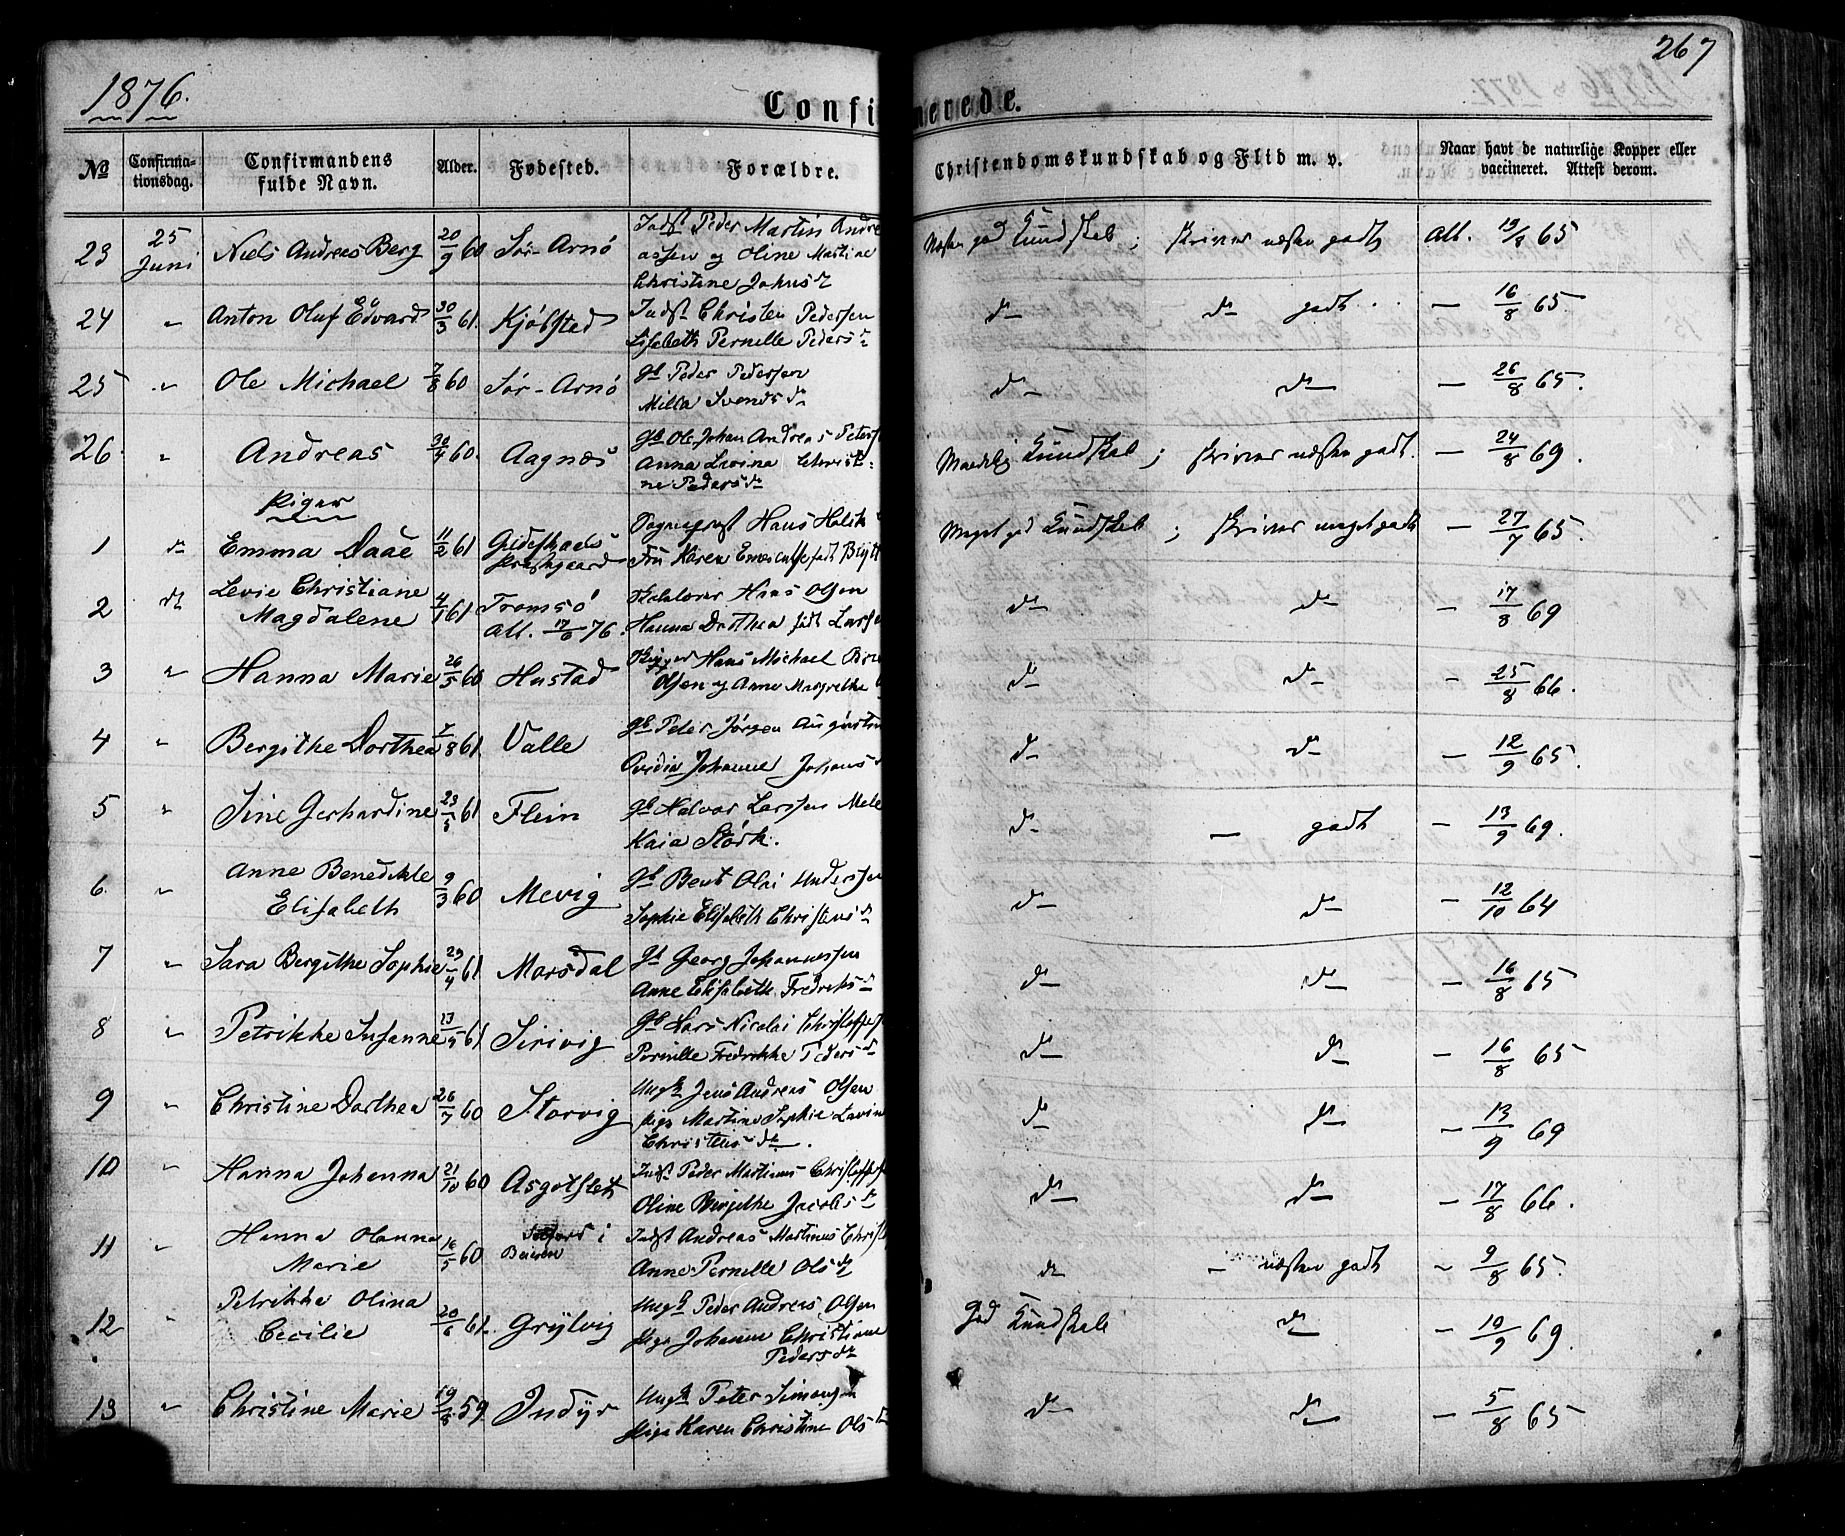 267
1876.
Confirmerede.
No
Confirmationsdag.
Confirmandens fulde Navn.
Alder.
Fødested.
Forældre.
Christendomskundskab og Flid m. v.
Naar havt de naturlige Kopper eller vaccineret. Attest derom.
23 25 Juni Niels Andreas Berg 20/9 60 Sør-Arnø
Indst Peder Martin Andre
assen og Oline Martine
Christine Johns d
Næsten god Kundskab; skriver næsten godt Att. 65
24 " Anton Oluf Edvard 30/3 61. Kjøbsted
Indst Christen Pedersen
Lisabeth Pernille Peders d
do do godt - 16/8 65.
25 " Ole Michael 7/8 60 Sør-Arnø
Gb Peder Pedersen
Milla Svends d
do do - 26/8 65.
26. " Andreas 60. Aagnæs
Gb Ole Johan Andreas Peters
Anna Lovina Christi-
ne Peders d
Maadelig Kundskab; skriver næsten godt. - 24/8 69.
Piger
1 do Emma Daae 11/2 61 Gildeskaals Præstegaard
Sogneprest Hans Holck
Fru Karen født
Meget god Kundskab; skriver meget godt - 27/7 65.
2 do Levie Christiane
Magdalene 4/1 61 Tromsø
Att. 76.
Hans Olsen
Hanna Dorthea født Larse
do do - 17/8 69
3 " Hanna Marie 26/5 60 Hustad
Hans Michael
Olsen og Anne Margrethe
do do - 25/8 66.
4 " Bergithe Dorthea 7/8 61. Valle
Gb Peder Jørgen Augustin
Ovidia Johanne Johans
do do - 12/9 65.
5 " Sine Gerhardine 23/5 61 Flein
Gb Halvor Larssen
Kaia Størk.
do - godt - 13/9 69.
6. " Anne Benedikte
Elisabeth 9/3 60 Mevig
Gb Bent Olai Anderssen
Sophie Elisabeth Christens d
do do - 12/10 64
7 " Sara Bergithe Sophie 29/4 61 Morsdal
Gb Georg Johannessen
Anne Elisabeth Fredriks d
do do - 16/8 65
8 " Petrikke Susanne 13/5 61 Sirivig
Gb Lars Nicolai Christoffers
Pernille Fredrikke Peders d
do do - 16/8 65
9 " Christine Dorthea 26/7 60 Storvig
Ungk Jens Andreas Olsen
Pige Martine Sophie Lavin
Christens d.
do do - 13/9 69
10 " Hanna Johanna 21/10 60 Asgotslet
Indst Peder Martinus Christoffers
Oline Birgithe Jacobs d
do do - 17/8 66.
11 " Hanna Olanna
Marie 16/5 60 i
Beieren
Indst Andreas Martinus Christ
Anne Pernille Ols d
do - næsten godt - 9/8 65.
12 " Petrikke Olina
Cecilie 20/6 61. Grytvig
Ungk Peder Andreas Olsen
Pige Johanne Christiane
Peders d
God Kundskab do - 69.
13 " Christine Marie 19/8 59 Indyr
Ungk Peter Simonsen
Pige Karen Christine Ols d
do do - 5/8 65